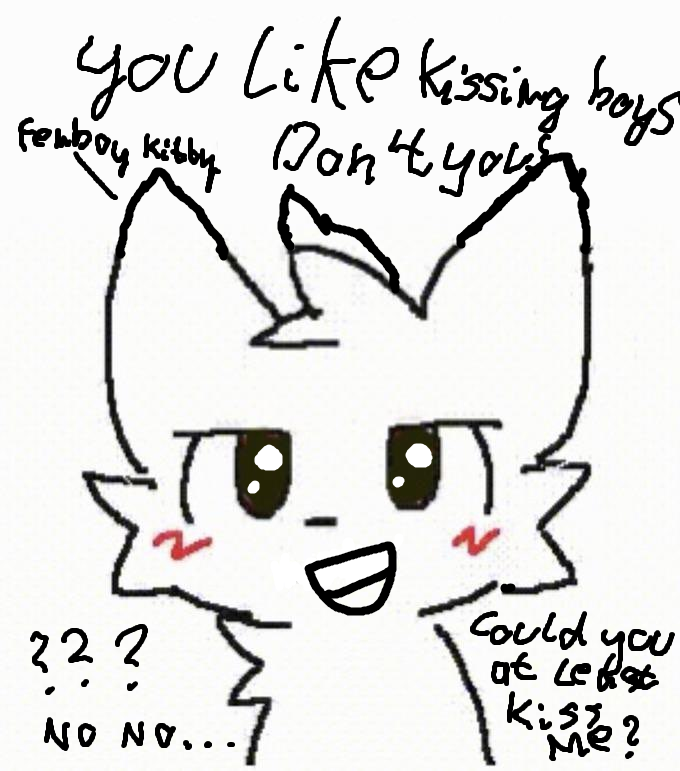 you Like kissing boys
Don't you?
Femboy kitty
???
NO NO...
Could you
at least
kiss
Me?